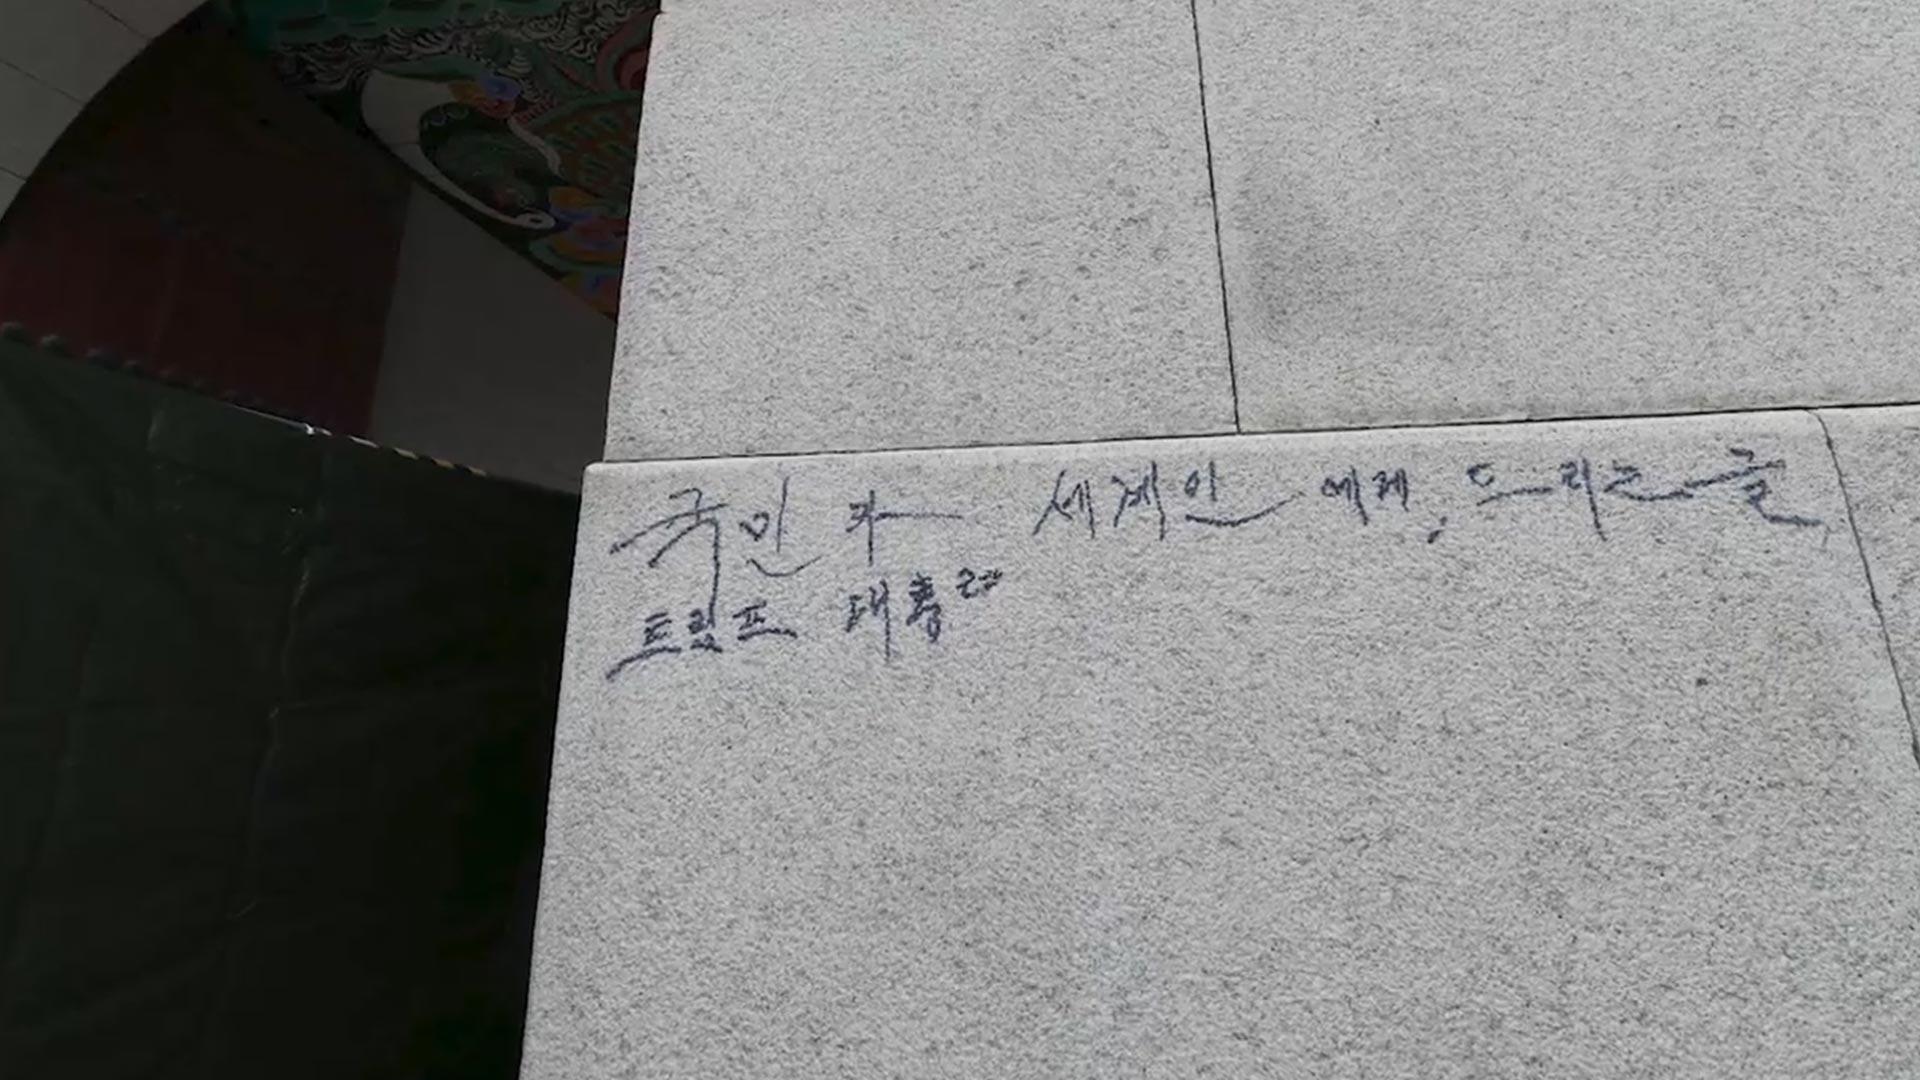 국민과 세계인에게 드리는글
트럼프 대통령